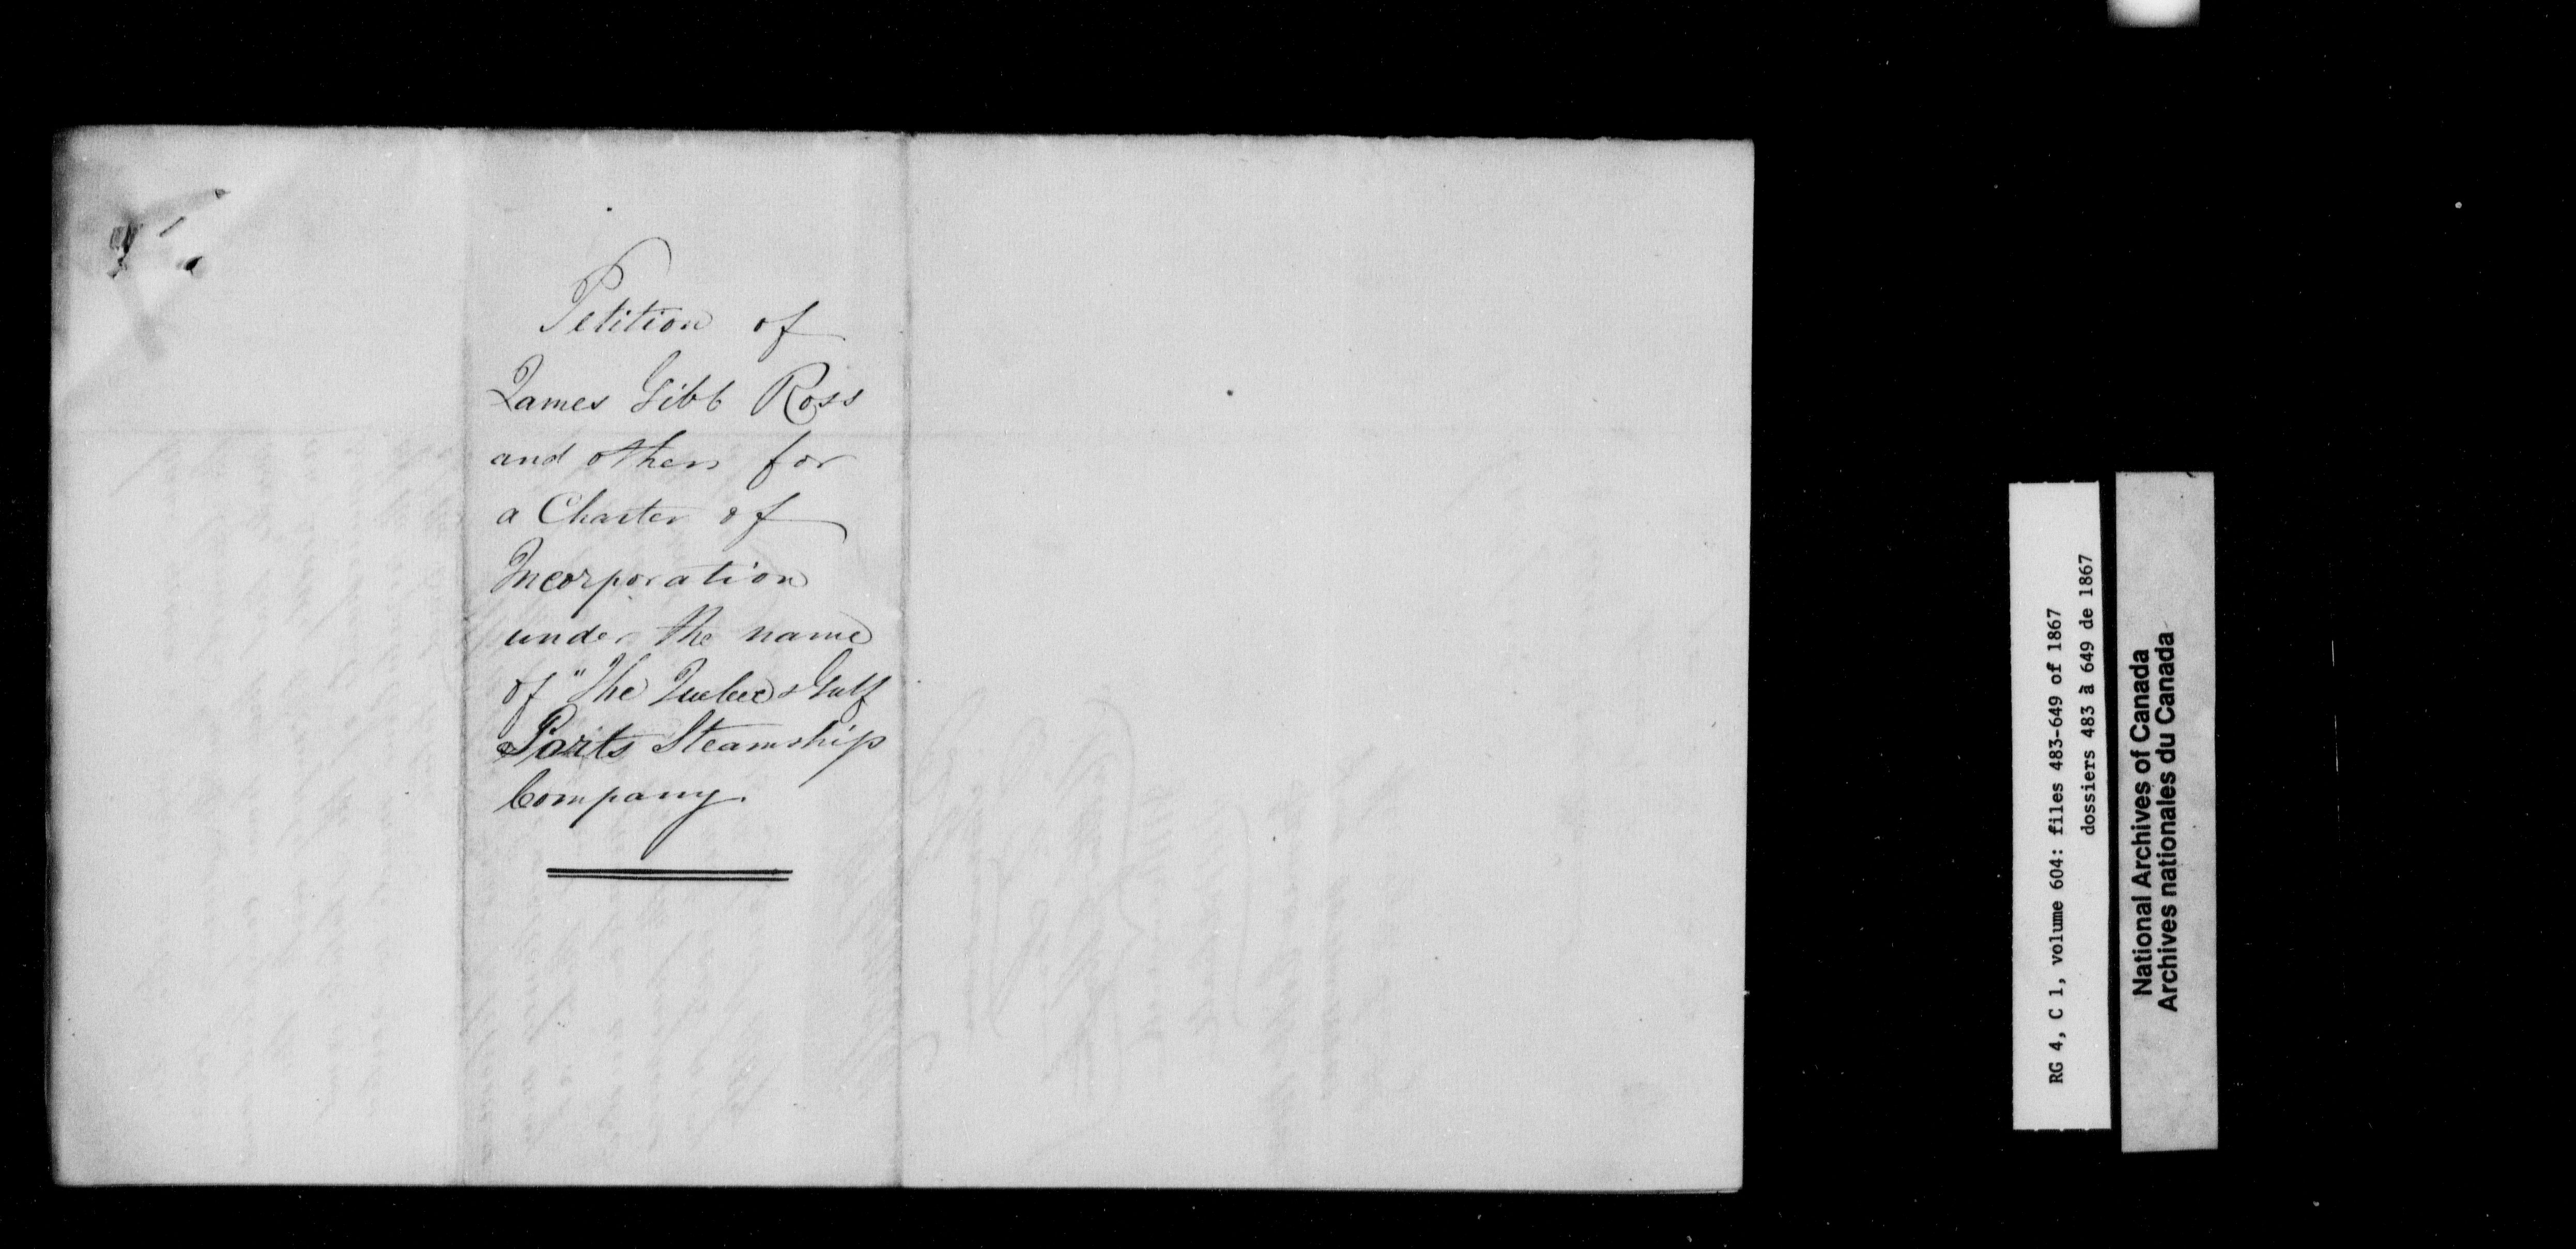 Petition of
James Gibb Ross
and others for
a Charter of
Incorporation
under the name
of "The Quebec & Gulf
Ports Steamship
Company.
RG 4, C 1, volume 604: files 483-649 of 1867
dossiers 483 à 649 de 1867
National Archives of Canada
Archives nationales du Canada